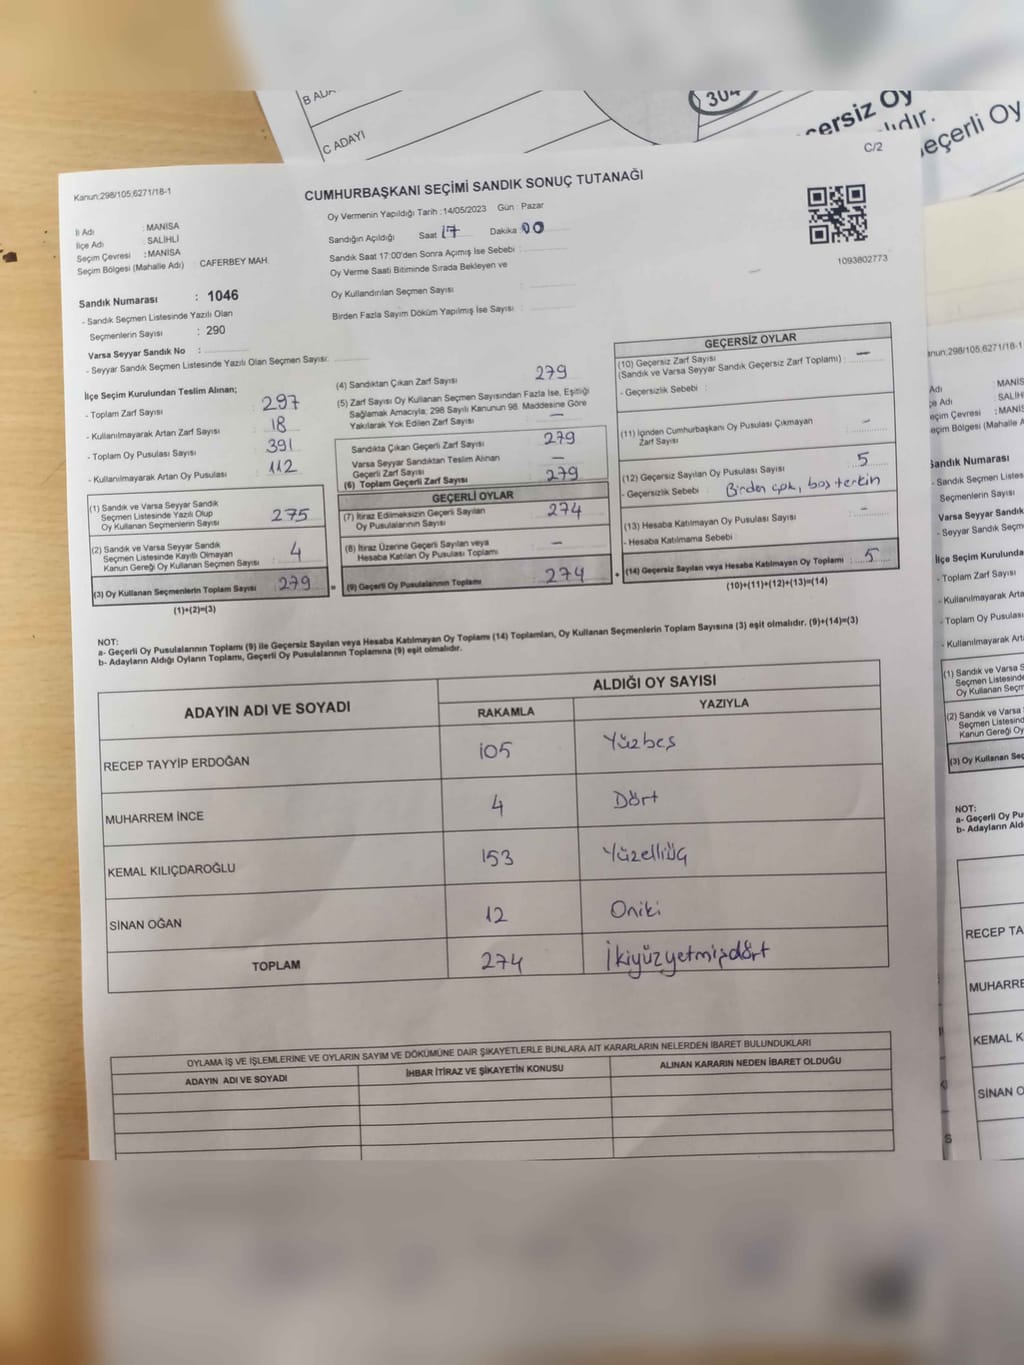 B ADA
C ADAYI
304
Geçersiz Oy
ıdır.
eçerli Oy
C/2
Kanun:298/105,6271/18-1
CUMHURBAŞKANI SEÇİMİ SANDIK SONUÇ TUTANAĞI
Oy Vermenin Yapıldığı Tarih :14/05/2023 Gün : Pazar
İl Adı : MANİSA
İlçe Adı : SALİHLİ
Seçim Çevresi : MANİSA
Seçim Bölgesi (Mahalle Adı) CAFERBEY MAH.
Sandığın Açıldığı Saat 17 Dakika 00
Sandık Saat 17:00'den Sonra Açımış İse Sebebi :
Oy Verme Saati Bitiminde Sırada Bekleyen ve
Oy Kullandırılan Seçmen Sayısı :
Birden Fazla Sayım Döküm Yapılmış İse Sayısı :
1093802773
Sandık Numarası : 1046
- Sandık Seçmen Listesinde Yazılı Olan
Seçmenlerin Sayısı : 290
Varsa Seyyar Sandık No :
- Seyyar Sandık Seçmen Listesinde Yazılı Olan Seçmen Sayısı:
İlçe Seçim Kurulundan Teslim Alınan;
- Toplam Zarf Sayısı : 297
- Kullanılmayarak Artan Zarf Sayısı : 18
- Toplam Oy Pusulası Sayısı : 391
- Kullanılmayarak Artan Oy Pusulası : 112
(1) Sandık ve Varsa Seyyar Sandık
Seçmen Listesinde Yazılı Olup
Oy Kullanan Seçmenlerin Sayısı : 275
(2) Sandık ve Varsa Seyyar Sandık
Seçmen Listesinde Kayıtlı Olmayan
Kanun Gereği Oy Kullanan Seçmen Sayısı : 4
(3) Oy Kullanan Seçmenlerin Toplam Sayısı : 279
(1)+(2)=(3)
(4) Sandıktan Çıkan Zarf Sayısı : 279
(5) Zarf Sayısı Oy Kullanan Seçmen Sayısından Fazla İse, Eşitliği
Sağlamak Amacıyla, 298 Sayılı Kanunun 98. Maddesine Göre
Yakılarak Yok Edilen Zarf Sayısı : —
Sandıkta Çıkan Geçerli Zarf Sayısı : 279
Varsa Seyyar Sandıktan Teslim Alınan
Geçerli Zarf Sayısı : —
(6) Toplam Geçerli Zarf Sayısı : 279
GEÇERLİ OYLAR
(7) İtiraz Edilmeksizin Geçerli Sayılan
Oy Pusulalarının Sayısı : 274
(8) İtiraz Üzerine Geçerli Sayılan veya
Hesaba Katılan Oy Pusulası Toplamı : —
(9) Geçerli Oy Pusulalarının Toplamı : 274
GEÇERSİZ OYLAR
(10) Geçersiz Zarf Sayısı
(Sandık ve Varsa Seyyar Sandık Geçersiz Zarf Toplamı) : —
- Geçersizlik Sebebi :
(11) İçinden Cumhurbaşkanı Oy Pusulası Çıkmayan
Zarf Sayısı : -
(12) Geçersiz Sayılan Oy Pusulası Sayısı : 5
- Geçersizlik Sebebi : Birden çok, boş terkin
(13) Hesaba Katılmayan Oy Pusulası Sayısı : -
- Hesaba Katılmama Sebebi :
(14) Geçersiz Sayılan veya Hesaba Katılmayan Oy Toplamı : 5
(10)+(11)+(12)+(13)=(14)
NOT:
a- Geçerli Oy Pusulalarının Toplamı (9) ile Geçersiz Sayılan veya Hesaba Katılmayan Oy Toplamı (14) Toplamları, Oy Kullanan Seçmenlerin Toplam Sayısına (3) eşit olmalıdır. (9)+(14)=(3)
b- Adayların Aldığı Oyların Toplamı, Geçerli Oy Pusulalarının Toplamına (9) eşit olmalıdır.
ADAYIN ADI VE SOYADI
ALDIĞI OY SAYISI
RAKAMLA YAZIYLA
RECEP TAYYİP ERDOĞAN 105 Yüzbeş
MUHARREM İNCE 4 Dört
KEMAL KILIÇDAROĞLU 153 Yüzelliüç
SİNAN OĞAN 12 Oniki
TOPLAM 274 İkiyüzyetmişdört
OYLAMA İŞ VE İŞLEMLERİNE VE OYLARIN SAYIM VE DÖKÜMÜNE DAİR ŞİKAYETLERLE BUNLARA AİT KARARLARIN NELERDEN İBARET BULUNDUKLARI
ADAYIN ADI VE SOYADI İHBAR İTİRAZ VE ŞİKAYETİN KONUSU ALINAN KARARIN NEDEN İBARET OLDUĞU
anun:298/105,6271/18-1
Adı : MANİS
çe Adı : SALİH
eçim Çevresi : MANİS
eçim Bölgesi (Mahalle A
Sandık Numarası
- Sandık Seçmen Listes
Seçmenlerin Sayısı
Varsa Seyyar Sandık
- Seyyar Sandık Seçme
İlçe Seçim Kurulunda
- Toplam Zarf Sayısı
- Kullanılmayarak Arta
- Toplam Oy Pusulas
- Kullanılmayarak Art
(1) Sandık ve Varsa S
Seçmen Listesind
Oy Kullanan Seçm
(2) Sandık ve Varsa
Seçmen Listesind
Kanun Gereği Oy
(3) Oy Kullanan Seç
NOT:
a- Geçerli Oy Pu
b- Adayların Ald
RECEP TA
MUHARRE
KEMAL K
SİNAN O